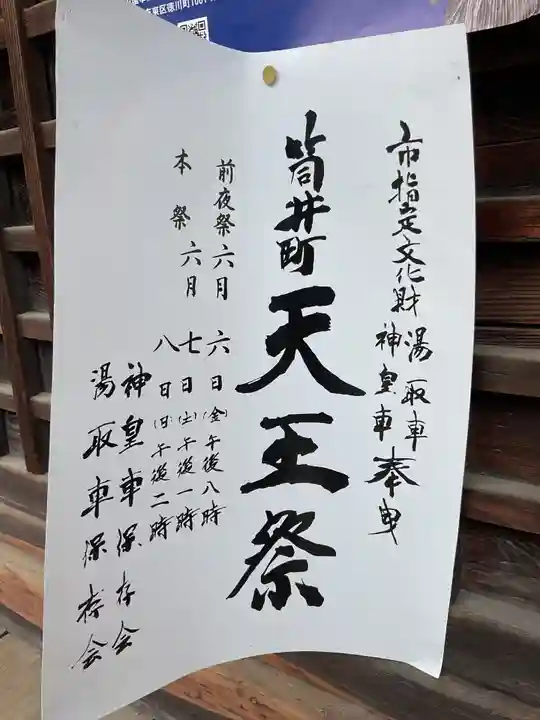 市東区徳川町1001
市指定文化財 湯取車
神皇車 奉曳
筒井町天王祭
前夜祭 六月 六日(金)午後八時
本祭 六月 七日(土)午後一時
八日(日)午後二時
神皇車保存会
湯取車保存会